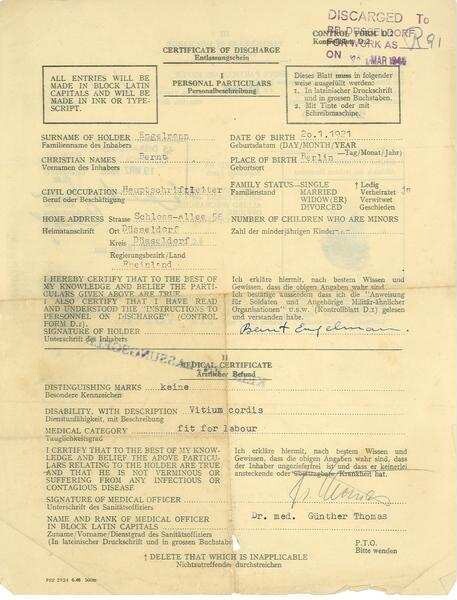 DISCARGED To
CONTROL FORM D.2
Kontrollblatt D.2
R91
ON MAR 194
CERTIFICATE OF DISCHARGE
Entlassungschein
ALL ENTRIES WILL BE
MADE IN BLOCK LATIN
CAPITALS AND WILL BE
MADE IN INK OR TYPE-
SCRIPT.
I
PERSONAL PARTICULARS
Personalbeschreibung
Dieses Blatt muss in folgender
weise ausgefüllt werden:
1. In lateinischer Druckschrift
und in grossen Buchstaben.
2. Mit Tinte oder mit
Schreibmaschine.
SURNAME OF HOLDER Engelmann
Familienname des Inhabers
CHRISTIAN NAMES Bernt
Vornamen des Inhabers
CIVIL OCCUPATION Hauptschriftleiter
Beruf oder Beschäftigung
HOME ADDRESS Strasse Schloss-allee 56
Heimatanschrift Ort Düsseldorf
Kreis Düsseldorf
Regierungsbezirk/Land
Rheinland
DATE OF BIRTH 20.1.1921
Geburtsdatum (DAY/MONTH/YEAR
—Tag/Monat/Jahr)
PLACE OF BIRTH Berlin
Geburtsort
FAMILY STATUS—SINGLE † Ledig
Familienstand MARRIED Verheiratet ja
WIDOW(ER) Verwitwet
DIVORCED Geschieden
NUMBER OF CHILDREN WHO ARE MINORS
Zahl der minderjährigen Kinder
I HEREBY CERTIFY THAT TO THE BEST OF
MY KNOWLEDGE AND BELIEF THE PARTI-
CULARS GIVEN ABOVE ARE TRUE.
I ALSO CERTIFY THAT I HAVE READ
AND UNDERSTOOD THE "INSTRUCTIONS TO
PERSONNEL ON DISCHARGE" (CONTROL
FORM D.1)
SIGNATURE OF HOLDER
Unterschrift des Inhabers
Ich erkläre hiermit, nach bestem Wissen und
Gewissen, dass die obigen Angaben wahr sind.
Ich bestätige ausserdem dass ich die "Anweisung
für Soldaten und Angehörige Militär-ähnlicher
Organisationen" u.s.w. (Kontrollblatt D.1) gelesen
und verstanden habe.
Bernt Engelmann.
II
MEDICAL CERTIFICATE
Ärztlicher Befund
DISTINGUISHING MARKS keine
Besondere Kennzeichen
DISABILITY, WITH DESCRIPTION Vitium cordis
Dienstunfähigkeit, mit Beschreibung
MEDICAL CATEGORY fit for labour
Tauglichkeitsgrad
I CERTIFY THAT TO THE BEST OF MY KNOW-
LEDGE AND BELIEF THE ABOVE PARTICU-
LARS RELATING TO THE HOLDER ARE TRUE
AND THAT HE IS NOT VERMINOUS OR
SUFFERING FROM ANY INFECTIOUS OR
CONTAGIOUS DISEASE
Ich erkläre hiermit, nach bestem Wissen und
Gewissen, dass die obigen Angaben wahr sind, dass
der Inhaber ungezieferfrei ist und dass er keinerlei
ansteckende oder übertragbare Krankheit hat.
SIGNATURE OF MEDICAL OFFICER
Unterschrift des Sanitätsoffiziers
NAME AND RANK OF MEDICAL OFFICER
IN BLOCK LATIN CAPITALS
Zuname/Vorname/Dienstgrad des Sanitätsoffiziers
(In lateinischer Druckschrift und in grossen Buchstaben)
Dr. med. Günther Thomas
P.T.O.
Bitte wenden
† DELETE THAT WHICH IS INAPPLICABLE
Nichtzutreffendes durchstreichen